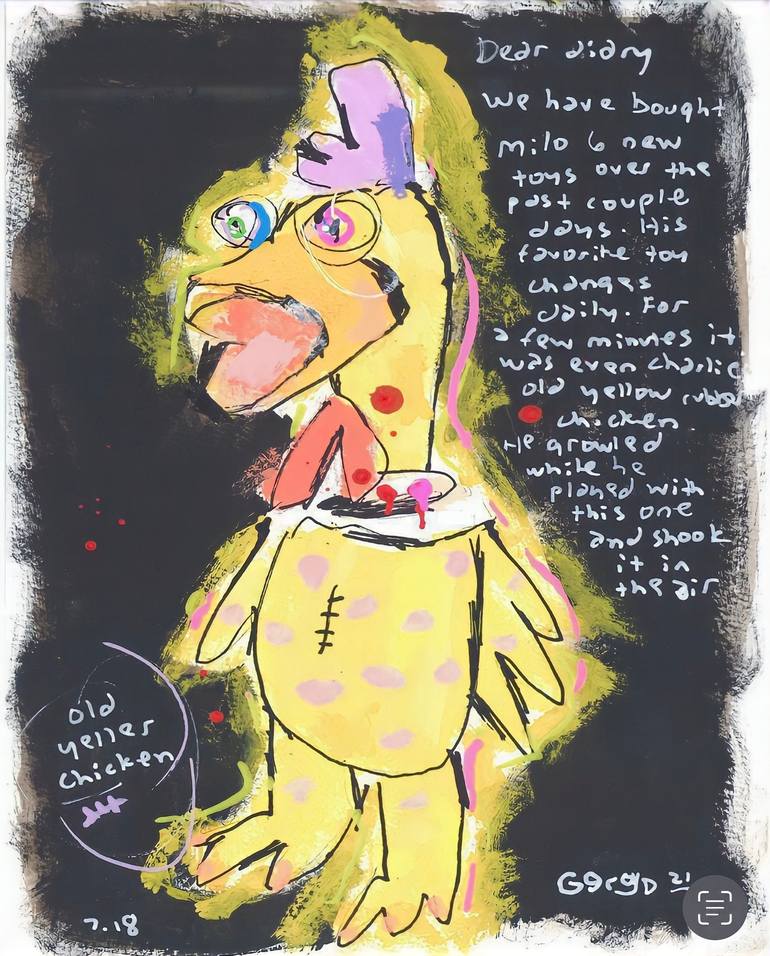 Dear diary
We have bought
milo 6 new
toys over the
past couple
days. His
favorite toy
changes
daily. For
a few minutes it
was even charlie
old yellow rubber
chicken.
He growled
while he
played with
this one
and shook
it in
the air
old
yeller
chicken
7.18
21